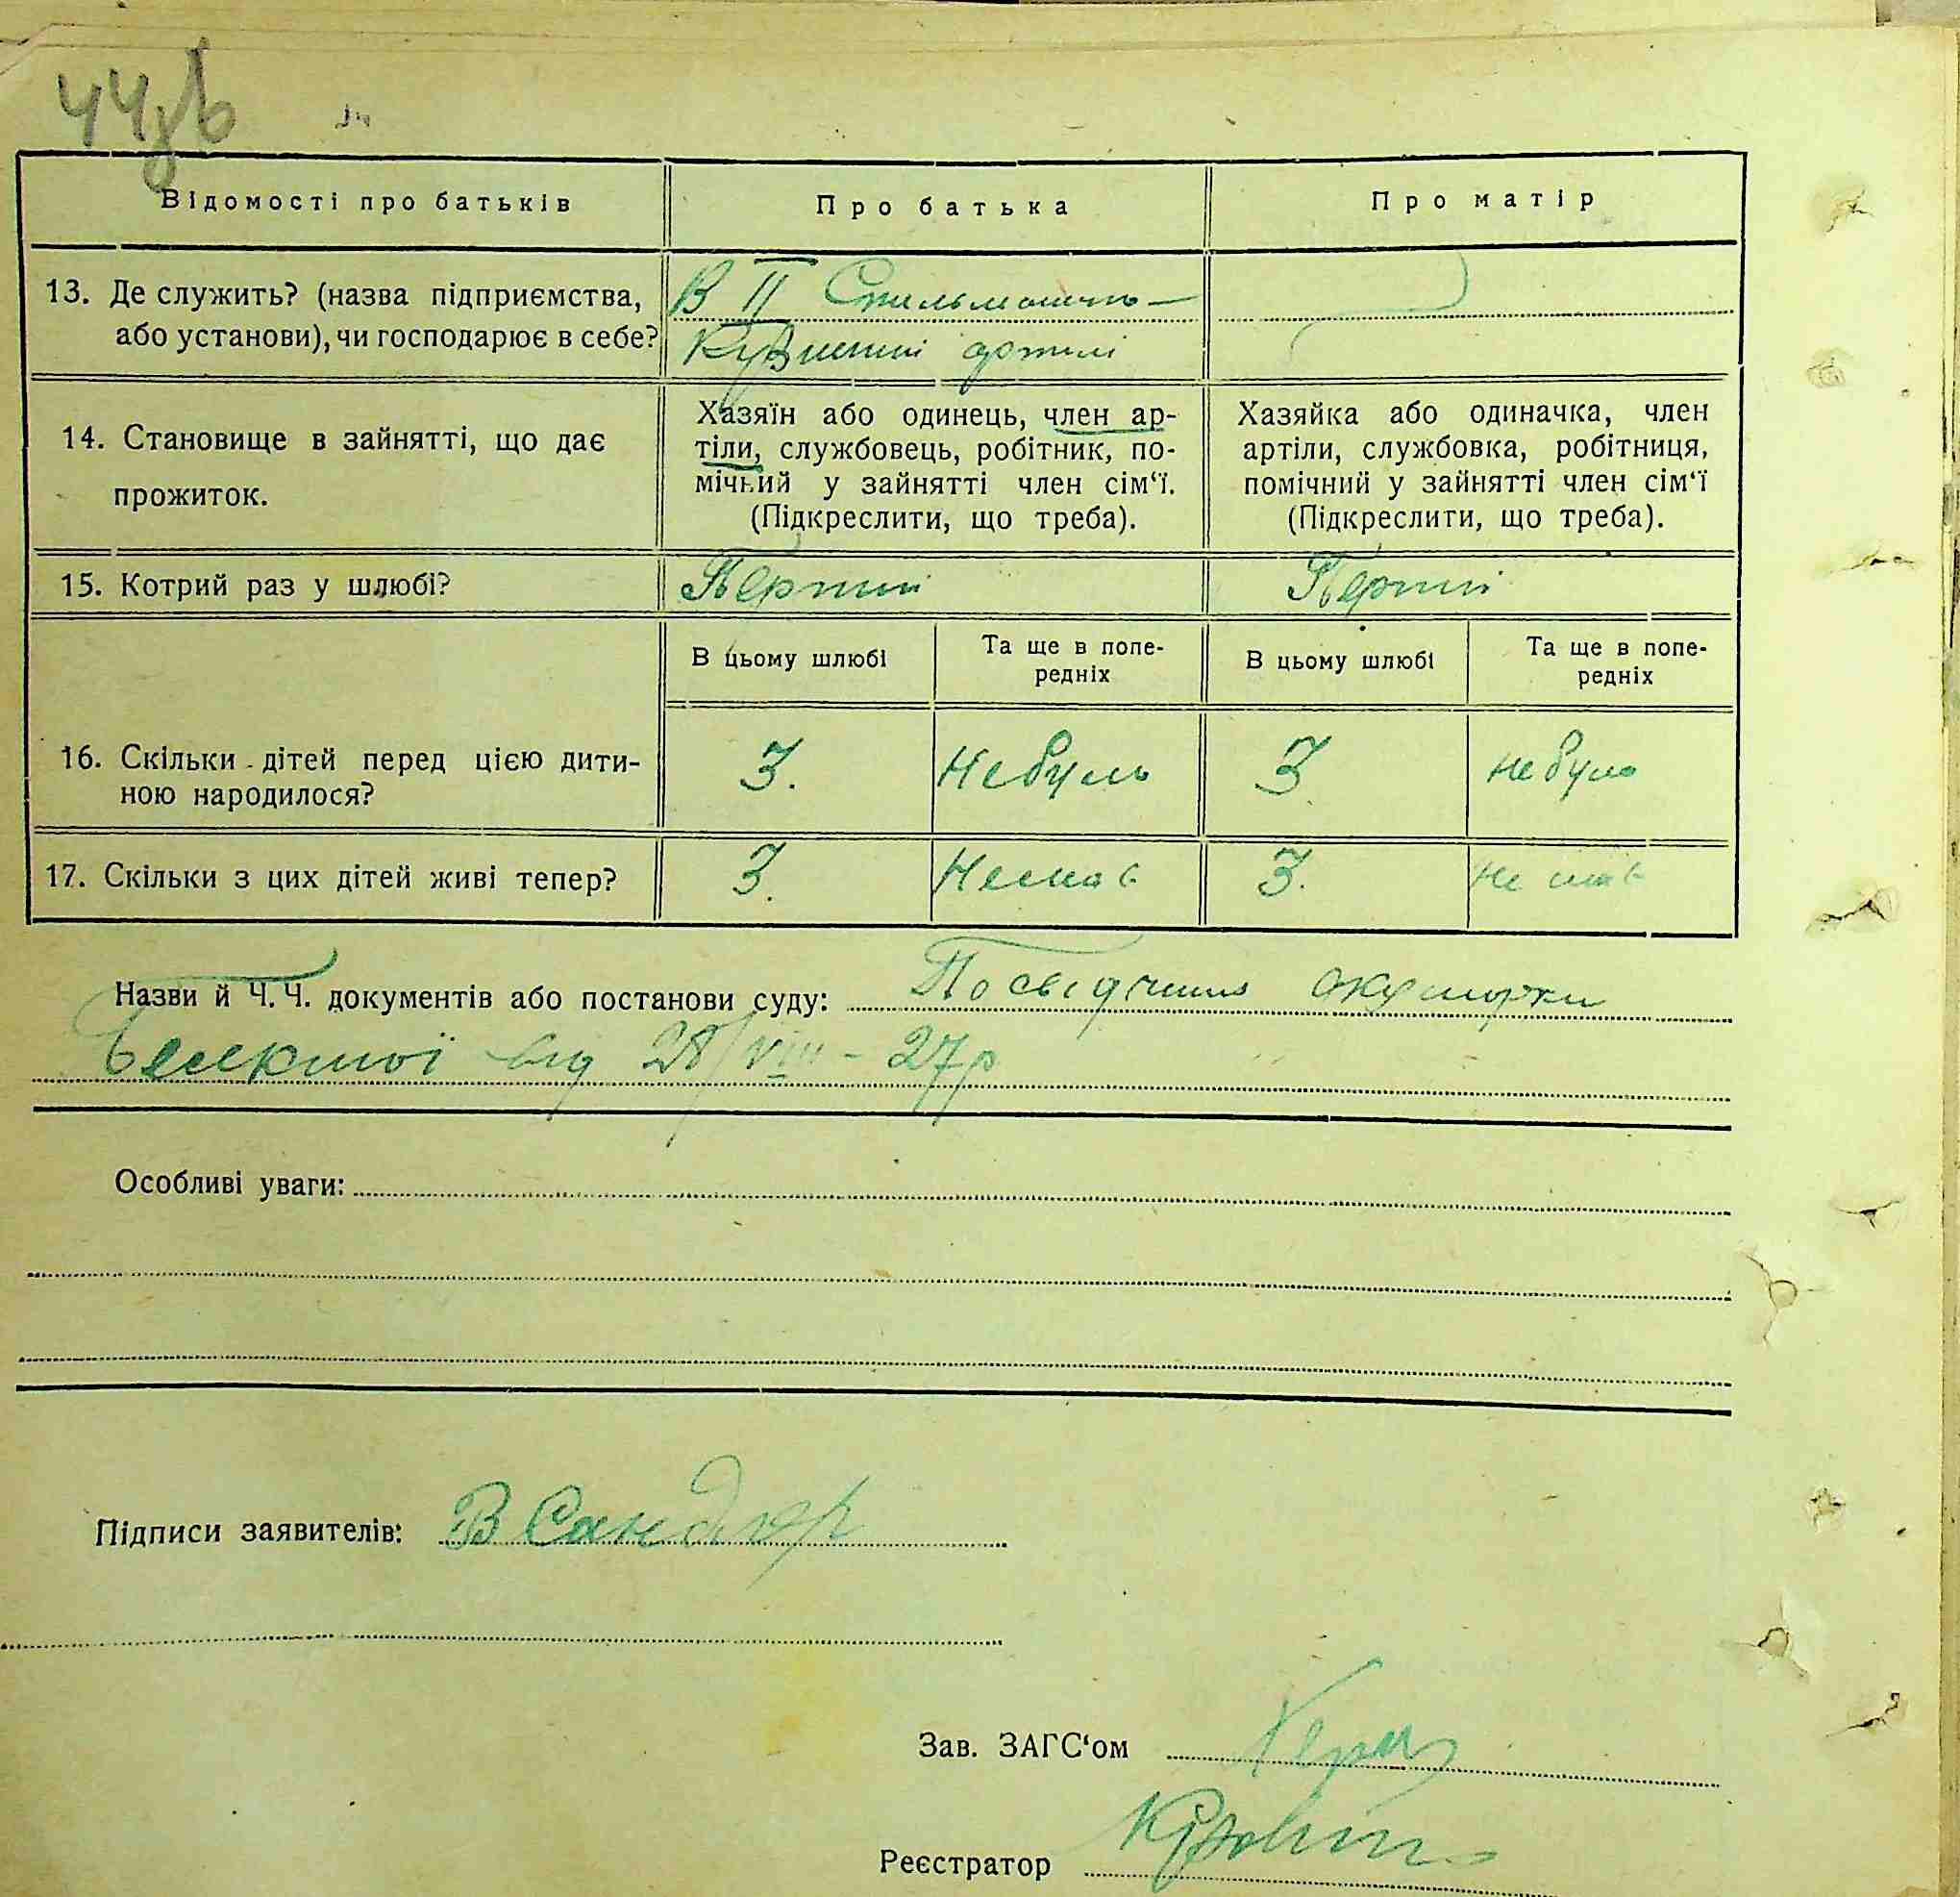 44зв
Відомості про батьків
Про батька
Про матір
13. Де служить? (назва підприємства,
або установи), чи господарює в себе?
В II Стельмашно-
Кузнечній артілі
14. Становище в зайнятті, що дає
прожиток.
Хазяїн або одинець, член ар-
тіли, службовець, робітник, по-
мічний у зайнятті член сім‘ї.
(Підкреслити, що треба).
Хазяйка або одиначка, член
артіли, службовка, робітниця,
помічний у зайнятті член сім‘ї
(Підкреслити, що треба).
15. Котрий раз у шлюбі?
Перший
Перший
В цьому шлюбі
Та ще в попе-
редніх
В цьому шлюбі
Та ще в попе-
редніх
16. Скільки дітей перед цією дити-
ною народилося?
3.
Небуло
3
не було
17. Скільки з цих дітей живі тепер?
3.
Немає
3.
Не має
Назви й Ч.Ч. документів або постанови суду: Посвідчення акушерки
від 28/VIII - 27р
Особливі уваги:
Підписи заявителів: В Сандлер
Зав. ЗАГС‘ом
Реєстратор